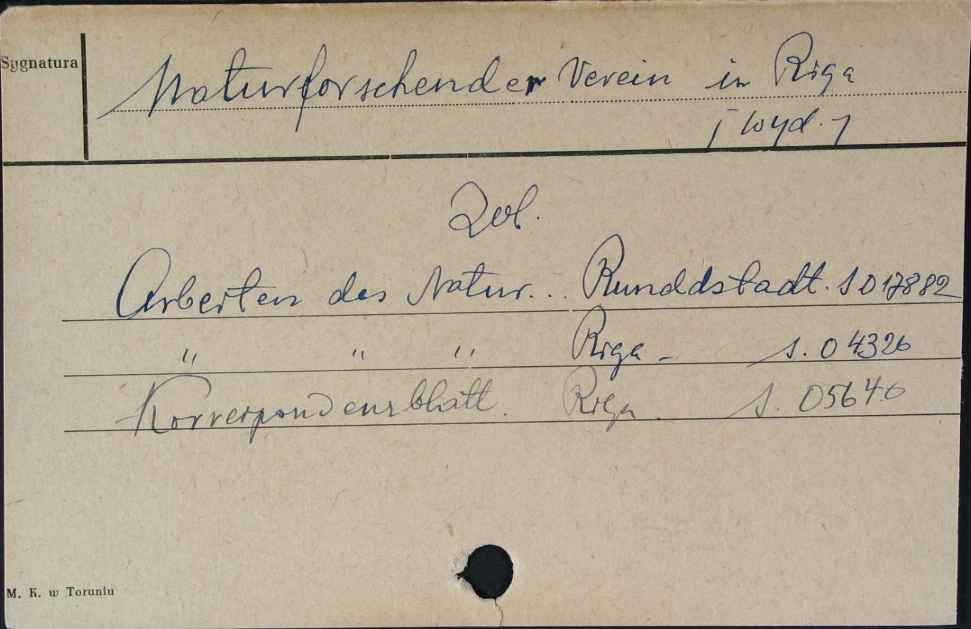 Sygnatura
Naturforschender Verein in Riga
[wyd.]
Zob.
Arbeiten des Natur... Runddstadt. S 017882
" " " Riga - S. 04326
Korrespondenzblatt. Riga. S. 05640
M. K. w Toruniu